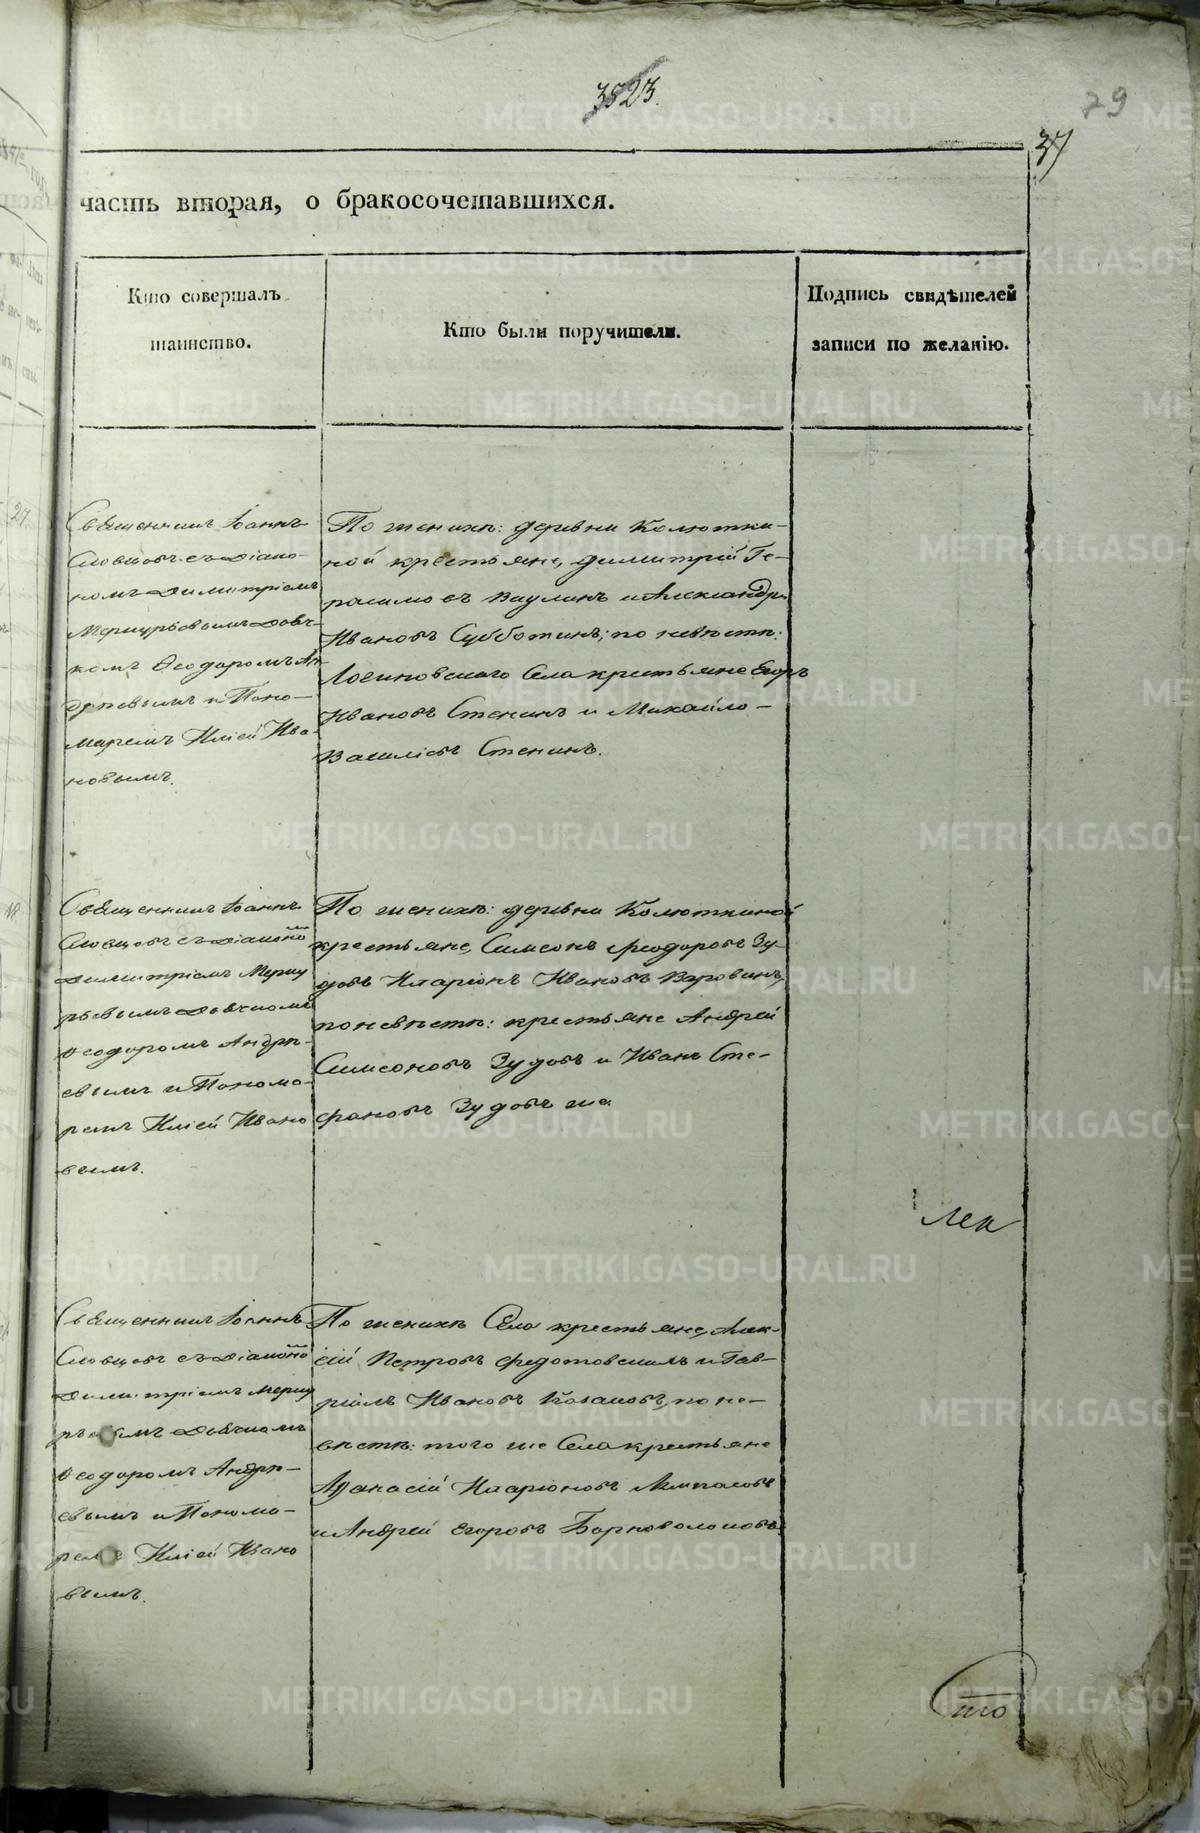 3523.
79
37
часть вторая, о бракосочетавшихся.
Кто совершалъ
таинство.
Кто были поручители.
Подпись свидѣтелей
записи по желанію.
Священникъ Іоаннъ
Словцовъ съ діако-
номъ Димитріемъ
Меркурьевымъ дьяч-
комъ Ѳеодоромъ Ан
дрѣевымъ и Поно-
маремъ Иліей Ива-
новымъ.
По женихѣ: деревни Колютки-
ной крестьяне, Димитрій Ге-
расимовъ Ваулинъ и Александръ
Ивановъ Субботинъ; по невѣстѣ:
Логиновскаго Села крестьяне Егоръ
Ивановъ Стенинъ и Михайло
Василіевъ Стенинъ.
Священникъ Іоаннъ
Словцовъ съ діакономъ
Димитріемъ Мерку
рьевымъ дьячкомъ
Ѳеодоромъ Андрѣ-
евымъ и Понома-
ремъ Иліей Ивано
вымъ.
По женихѣ: деревни Колюткиной
крестьяне, Симеонъ Ѳеодоровъ Зу-
довъ Иларіонъ Ивановъ
по невѣстѣ: крестьяне Андрей
Симеоновъ Зудовъ и Иванъ Сте-
фановъ Зудовъ же.
лен
Священникъ Іоаннъ
Словцовъ съ діакономъ
Димитріемъ Мерку
рьевымъ дьячкомъ
Ѳеодоромъ Андрѣ-
евымъ и Понома-
ремъ Иліей Ивано
вымъ.
По женихѣ Села крестьяне, Алек-
сій Петровъ Федотовскихъ и Гав-
ріилъ Ивановъ Казаковъ, по не-
вѣстѣ: того же Села крестьяне
Аѳанасій Иларіоновъ
и Андрей Егоровъ Борноволоковъ.
METRIKI.GASO-URAL.RU